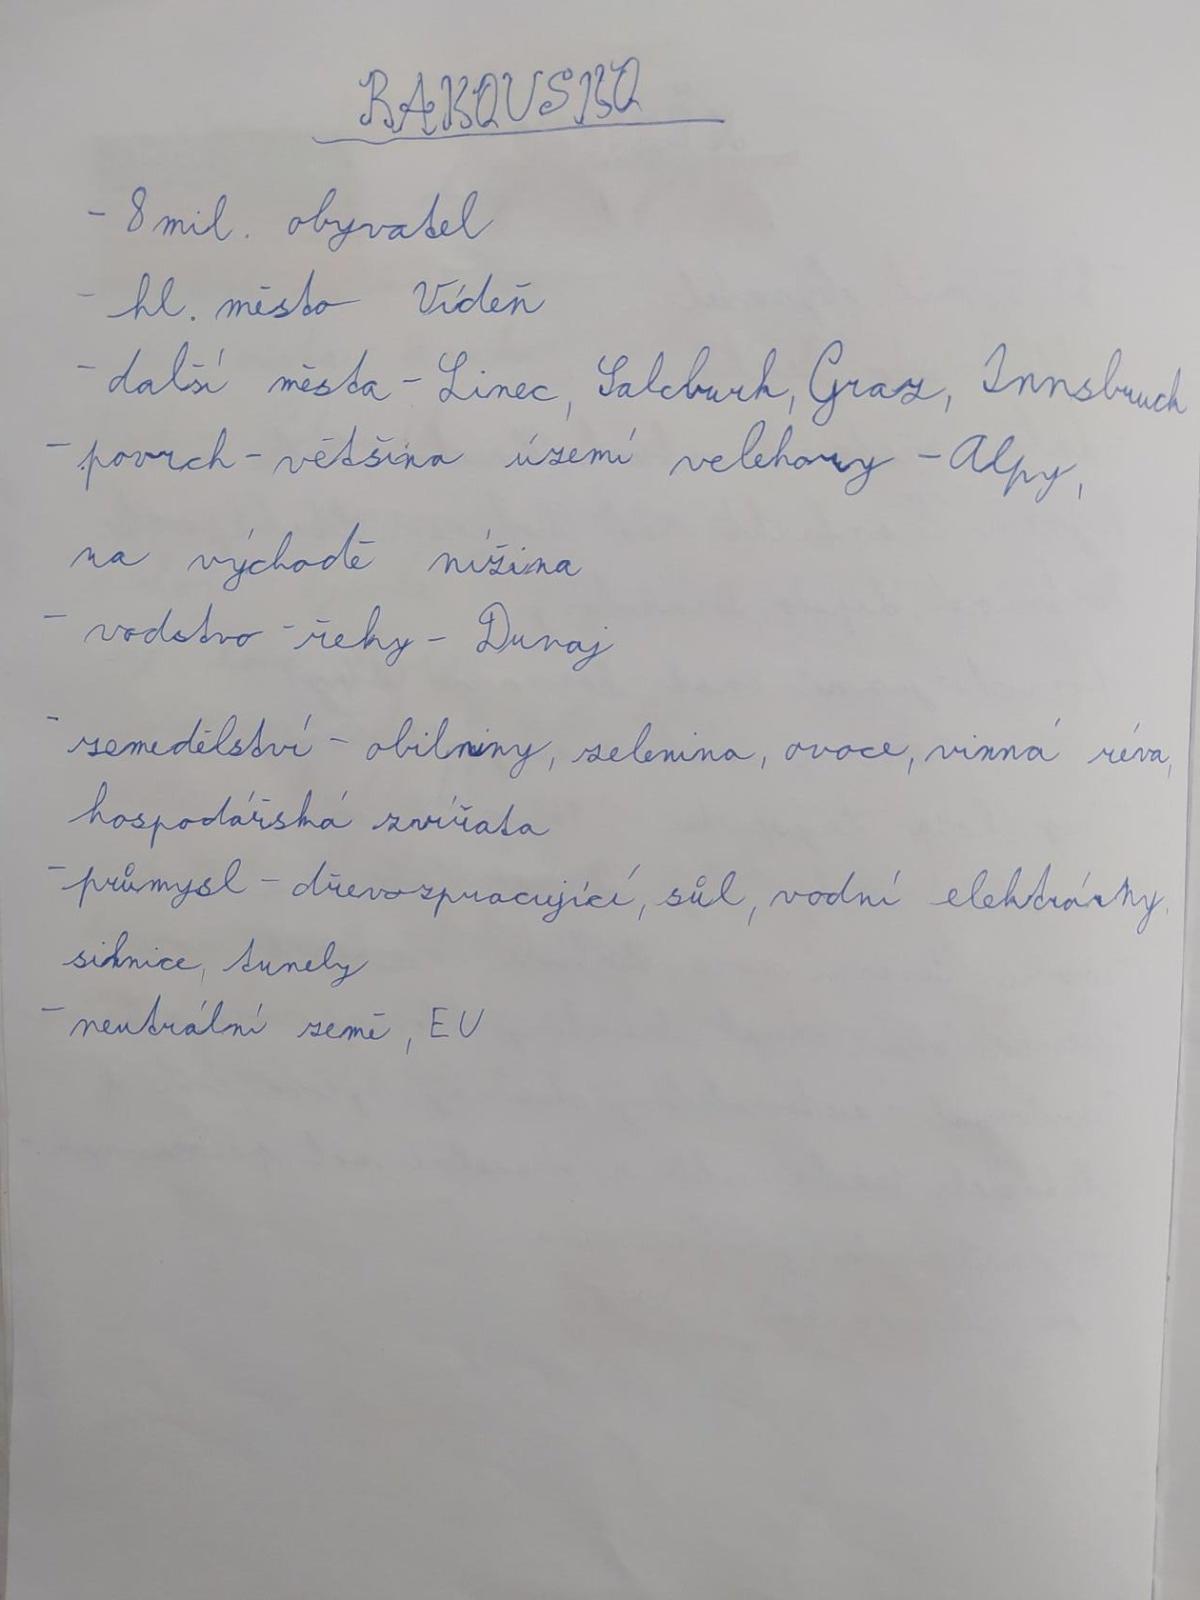 RAKOUSKO
- 8 mil. obyvatel
- hl. město Vídeň
- další města - Linec, Salcburk, Graz, Innsbruck
- povrch - většina území velehory - Alpy,
na východě nížina
- vodstvo - řeky - Dunaj
- zemedělství - obilniny, zelenina, ovoce, vinná réva,
hospodářská zvířata
- průmysl - dřevozpracující, sůl, vodní elektrárny.
silnice, tunely
- neutrální země, EU